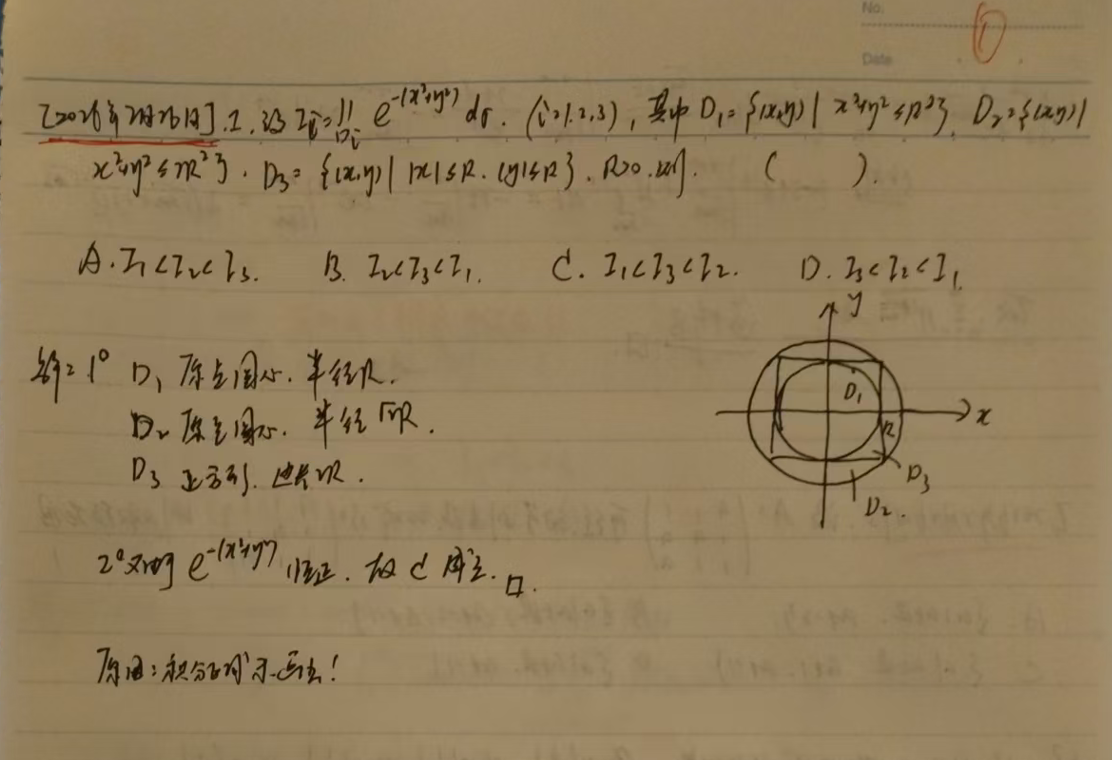 No.
Date
①
[2026年2月26日].1.设 I_i=∬_{D_i} e^{-(x²+y²)} dσ.(i=1.2.3),其中 D₁={(x,y)| x²+y²≤R²}. D₂={(x,y)|
x²+y²≤2R²}. D₃={(x,y)| |x|≤R. |y|≤R}. R>0.则.( ).
A.I₁<I₂<I₃. B. I₂<I₃<I₁. C. I₁<I₃<I₂. D. I₃<I₂<I₁.
解:1° D₁ 原点圆心.半径R.
D₂ 原点圆心.半径√2R.
D₃ 正方形.边长2R.
y
x
D₁
R
D₃
D₂.
2° 又由于 e^{-(x²+y²)} 恒正.故 C 成立.□.
原因:积分区域不画!